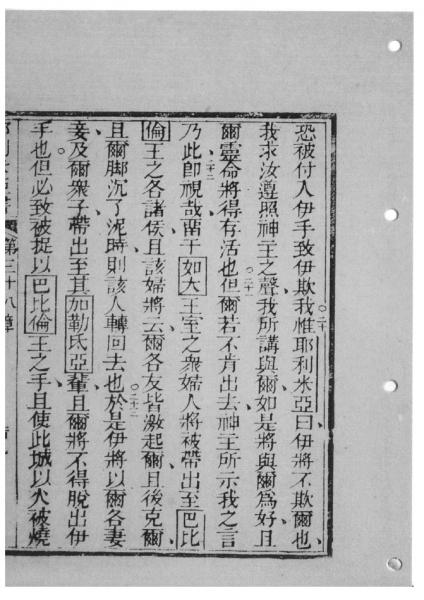 恐被付入伊手致伊欺我惟耶利米亞曰伊將不欺爾也
我求汝遵照神主之聲我所講與爾如是將與爾為好且
爾靈命將得有活也但爾若不肯出去神主所示我之言
乃此即視哉留于如大王室之衆婦人將被帶出至巴比
倫王之各諸侯且該婦將云爾各友皆激起爾且後克爾
且爾脚沉了泥時則該人轉回去也於是伊將以爾各妻
妾及爾衆子帶出至其加勒氐亞輩且爾將不得脫出伊
手也但必致被捉以巴比倫王之手且使此城以火被燒
第三十八章